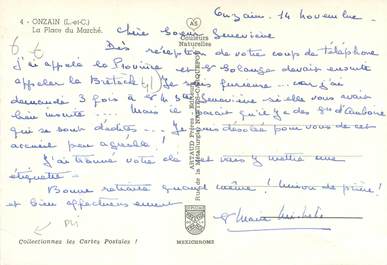 4 - ONZAIN (L.-et-C.)
La Place du Marché.
Onzain. 14 novembre -
Chère Soeur Geneviève
Dès réception de votre coup de téléphone
j'ai appelé la Province et Sr Solange devait ensuite
appeler la Je suis furieuse ... car j'ai
demandé 3 fois à Sr M. Geneviève si elle vous avait
bien inscrite ... Mais il
qui se sont ... Je suis désolée pour vous de cet
accueil peu agréable !
J'ai trouvé votre clé et vais y mettre une
étiquette -
Bonne retraite quand même ! Union de prière !
et bien affectueusement
Sr Marie Michèle
AS
Couleurs
Naturelles
ARTAUD Frères - Éditeurs
Rue de la Métallurgie, NANTES-CARQUEFOU
Collectionnez les Cartes Postales !
MEXICHROME